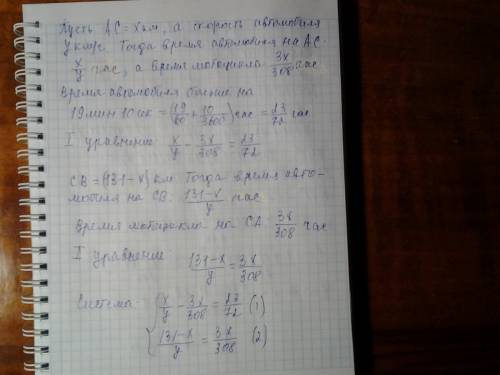 Пусть АС = x км, а скорость автомобиля
y км/с. Тогда время автомобиля на АС:
x/y час, а время мотоцикла 3x/308 час
Время автомобиля больше на
19 мин 10 сек = (19/60 + 10/3600) час = 23/72 час
I уравнение x/y - 3x/308 = 23/72
СВ = (131-x) км. Тогда время авто-
мобиля на СВ: 131-x/y час
Время мотоцикла на СА 3x/308 час
I уравнение 131-x/y = 3x/308
Система: { x/y - 3x/308 = 23/72 (1)
131-x/y = 3x/308 (2)